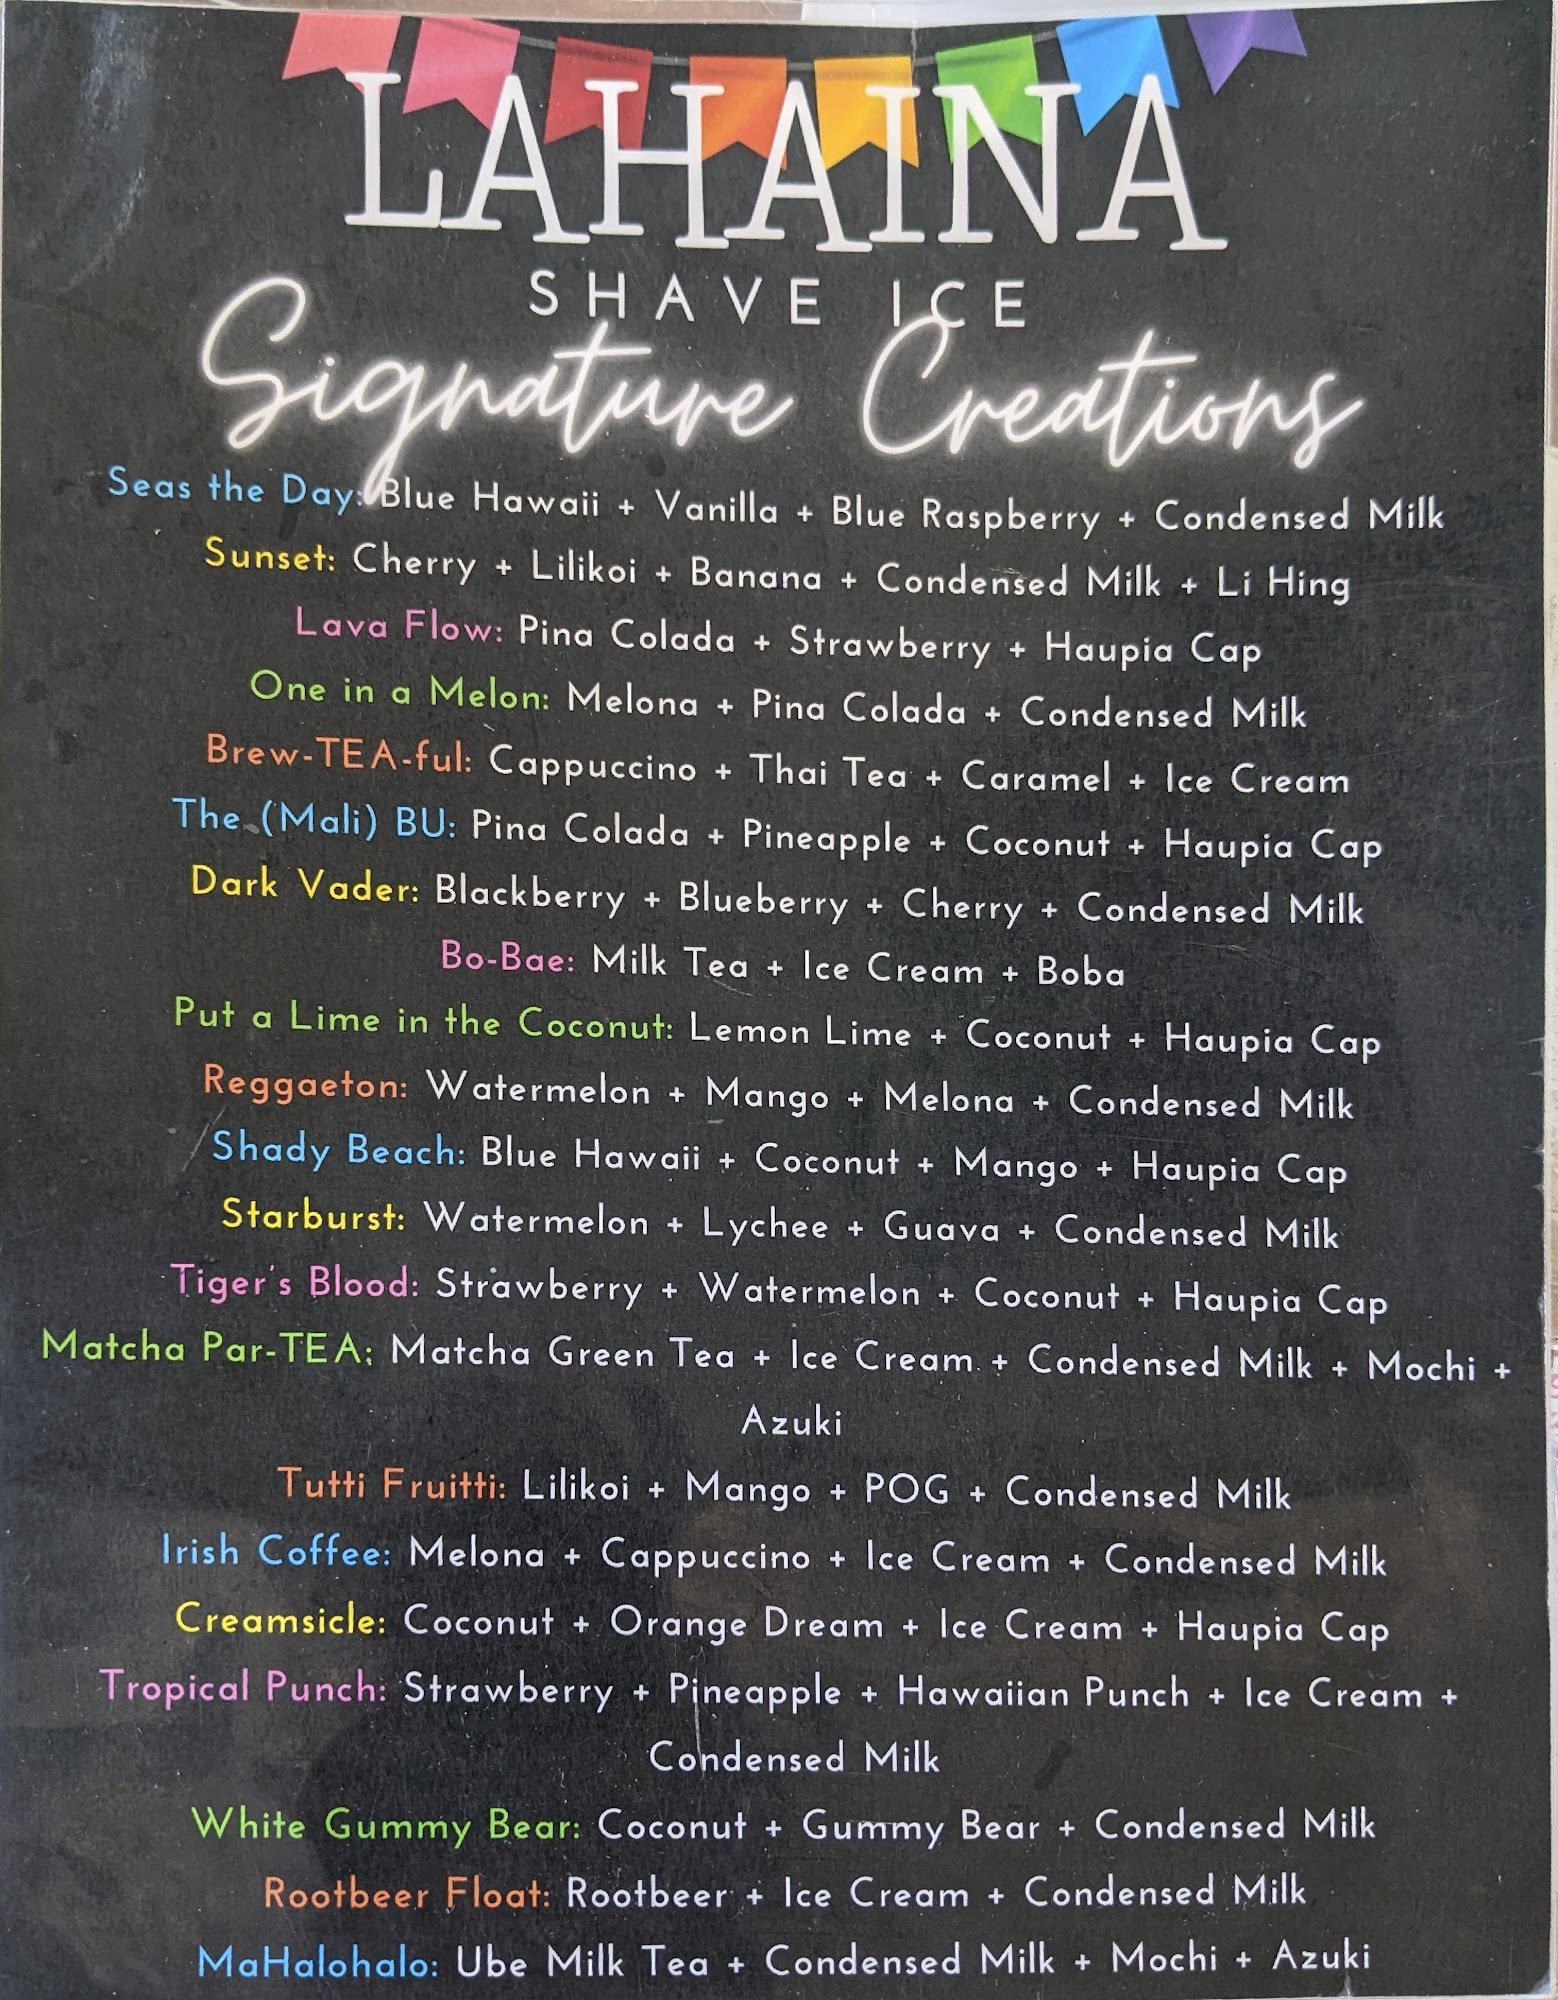 LAHAINA
SHAVE ICE
Signature Creations
Seas the Day: Blue Hawaii + Vanilla + Blue Raspberry + Condensed Milk
Sunset: Cherry + Lilikoi + Banana + Condensed Milk + Li Hing
Lava Flow: Pina Colada + Strawberry + Haupia Cap
One in a Melon: Melona + Pina Colada + Condensed Milk
Brew-TEA-ful: Cappuccino + Thai Tea + Caramel + Ice Cream
The (Mali) BU: Pina Colada + Pineapple + Coconut + Haupia Cap
Dark Vader: Blackberry + Blueberry + Cherry + Condensed Milk
Bo-Bae: Milk Tea + Ice Cream + Boba
Put a Lime in the Coconut: Lemon Lime + Coconut + Haupia Cap
Reggaeton: Watermelon + Mango + Melona + Condensed Milk
Shady Beach: Blue Hawaii + Coconut + Mango + Haupia Cap
Starburst: Watermelon + Lychee + Guava + Condensed Milk
Tiger's Blood: Strawberry + Watermelon + Coconut + Haupia Cap
Matcha Par-TEA: Matcha Green Tea + Ice Cream + Condensed Milk + Mochi +
Azuki
Tutti Fruitti: Lilikoi + Mango + POG + Condensed Milk
Irish Coffee: Melona + Cappuccino + Ice Cream + Condensed Milk
Creamsicle: Coconut + Orange Dream + Ice Cream + Haupia Cap
Tropical Punch: Strawberry + Pineapple + Hawaiian Punch + Ice Cream +
Condensed Milk
White Gummy Bear: Coconut + Gummy Bear + Condensed Milk
Rootbeer Float: Rootbeer + Ice Cream + Condensed Milk
MaHalohalo: Ube Milk Tea + Condensed Milk + Mochi + Azuki